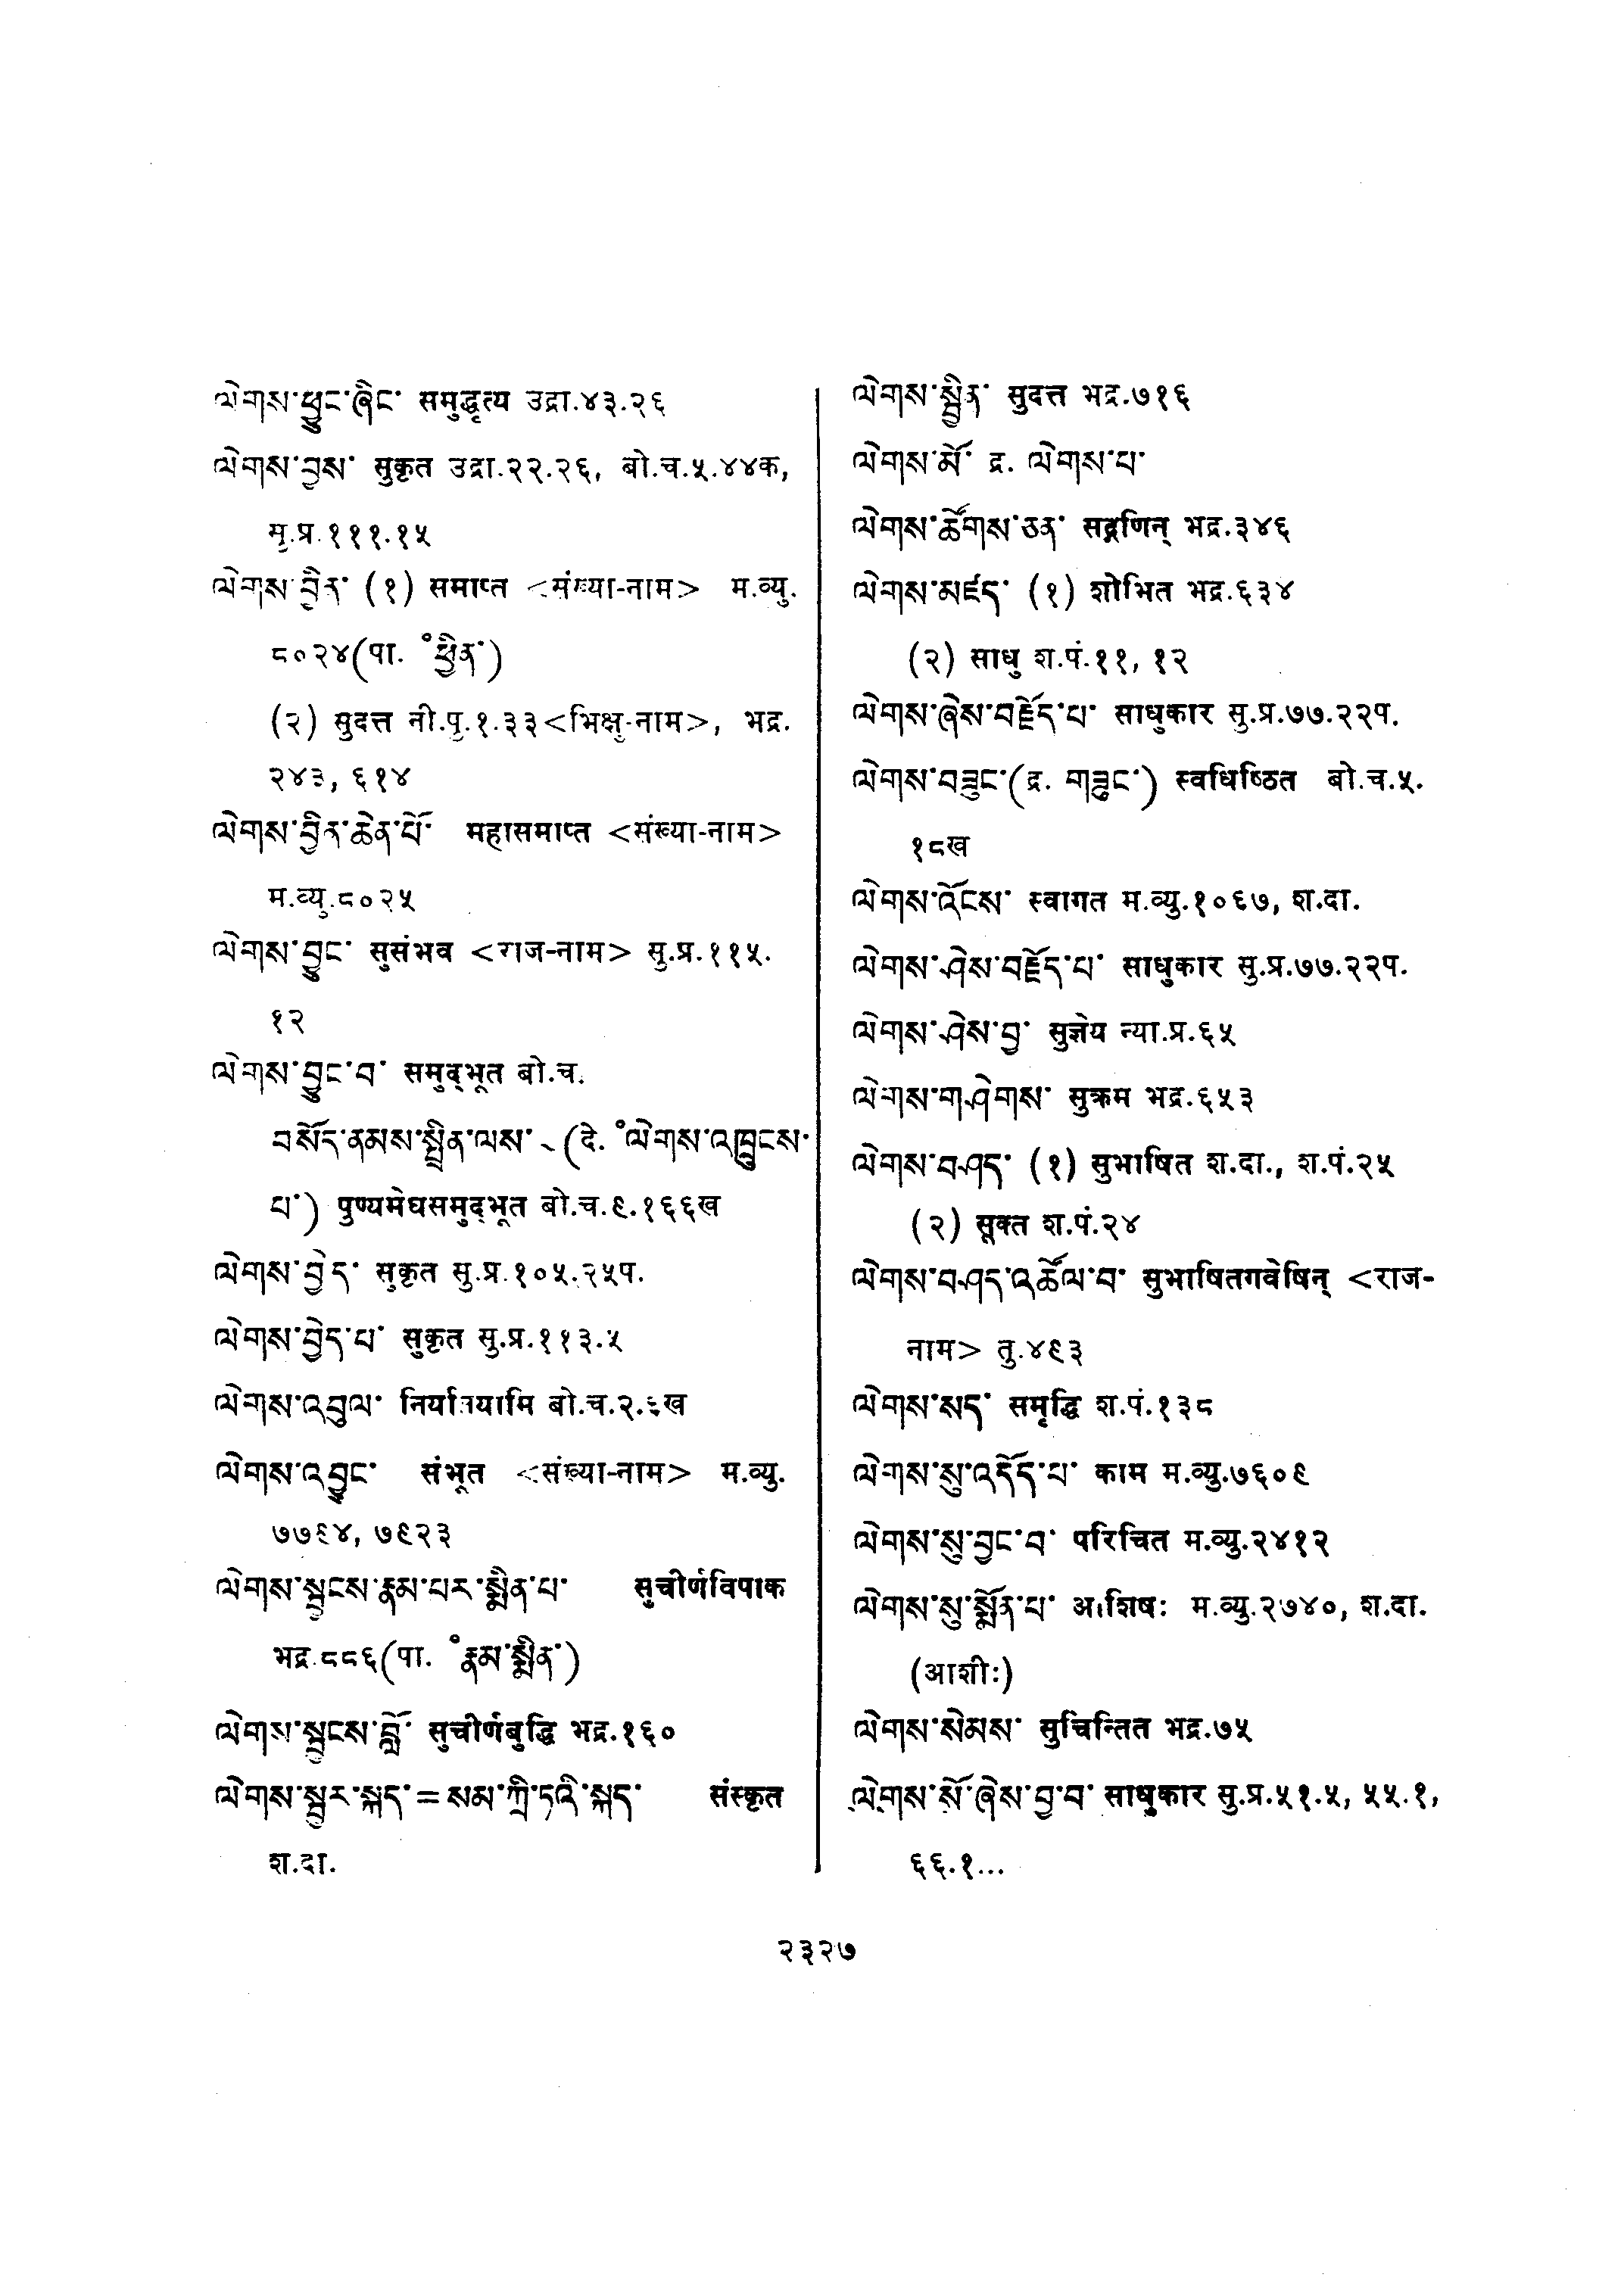 ལེགས་ཕྱུང་ཞིང་ समुद्धृत्य उद्रा.४३.२६
ལེགས་བྱས་ सुकृत उद्रा.२२.२६, बो.च.५.४४क,
मृ.प्र.१११.१५
ལེགས་བྱིན་ (१) समाप्त <संख्या-नाम> म.व्यु.
८०२४(पा. ॰ཕྱིན་)
(२) सुदत्त नी.पु.१.३३<भिक्षु-नाम>, भद्र.
२४३, ६१४
ལེགས་བྱིན་ཆེན་པོ་ महासमाप्त <संख्या-नाम>
म.व्यु.८०२५
ལེགས་བྱུང་ सुसंभव <राज-नाम> सु.प्र.११५.
१२
ལེགས་བྱུང་བ་ समुद्भूत बो.च.
བསོད་ནམས་སྤྲིན་ལས་ ~ (दे. ॰ལེགས་འཁྲུངས་
པ་) पुण्यमेघसमुद्भूत बो.च.९.१६६ख
ལེགས་བྱེད་ सुकृत सु.प्र.१०५.२५प.
ལེགས་བྱེད་པ་ सुकृत सु.प्र.११३.५
ལེགས་འབུལ་ निर्यातयामि बो.च.२.६ख
ལེགས་འབྱུང་ संभूत <संख्या-नाम> म.व्यु.
७७९४, ७९२३
ལེགས་སྦྱངས་རྣམ་པར་སྨིན་པ་ सुचीर्णविपाक
भद्र.८८६(पा. ॰རྣམ་སྨིན་)
ལེགས་སྦྱངས་བློ་ सुचीर्णबुद्धि भद्र.१६०
ལེགས་སྦྱར་སྐད་=སམ་ཀྲི་ཏའི་སྐད་ संस्कृत
श.दा.
ལེགས་སྦྱིན་ सुदत्त भद्र.७१६
ལེགས་མོ་ द्र. ལེགས་པ་
ལེགས་ཚོགས་ཅན་ सद्गणिन् भद्र.३४६
ལེགས་མཛད་ (१) शोभित भद्र.६३४
(२) साधु श.पं.११, १२
ལེགས་ཞེས་བརྗོད་པ་ साधुकार सु.प्र.७७.२२प.
ལེགས་བཟུང་(द्र. གཟུང་) स्वधिष्ठित बो.च.५.
१८ख
ལེགས་འོངས་ स्वागत म.व्यु.१०६७, श.दा.
ལེགས་ཤེས་བརྗོད་པ་ साधुकार सु.प्र.७७.२२प.
ལེགས་ཤེས་བྱ་ सुज्ञेय न्या.प्र.६५
ལེགས་གཤེགས་ सुक्रम भद्र.६५३
ལེགས་བཤད་ (१) सुभाषित श.दा., श.पं.२५
(२) सूक्त श.पं.२४
ལེགས་བཤད་འཚོལ་བ་ सुभाषितगवेषिन् <राज-
नाम> तु.४९३
ལེགས་སད་ समृद्धि श.पं.१३८
ལེགས་སུ་འདོད་པ་ काम म.व्यु.७६०९
ལེགས་སུ་བྱང་བ་ परिचित म.व्यु.२४१२
ལེགས་སུ་སྨོན་པ་ आशिषः म.व्यु.२७४०, श.दा.
(आशीः)
ལེགས་སེམས་ सुचिन्तित भद्र.७५
ལེགས་སོ་ཞེས་བྱ་བ་ साधुकार सु.प्र.५१.५, ५५.१,
६६.१...
२३२७